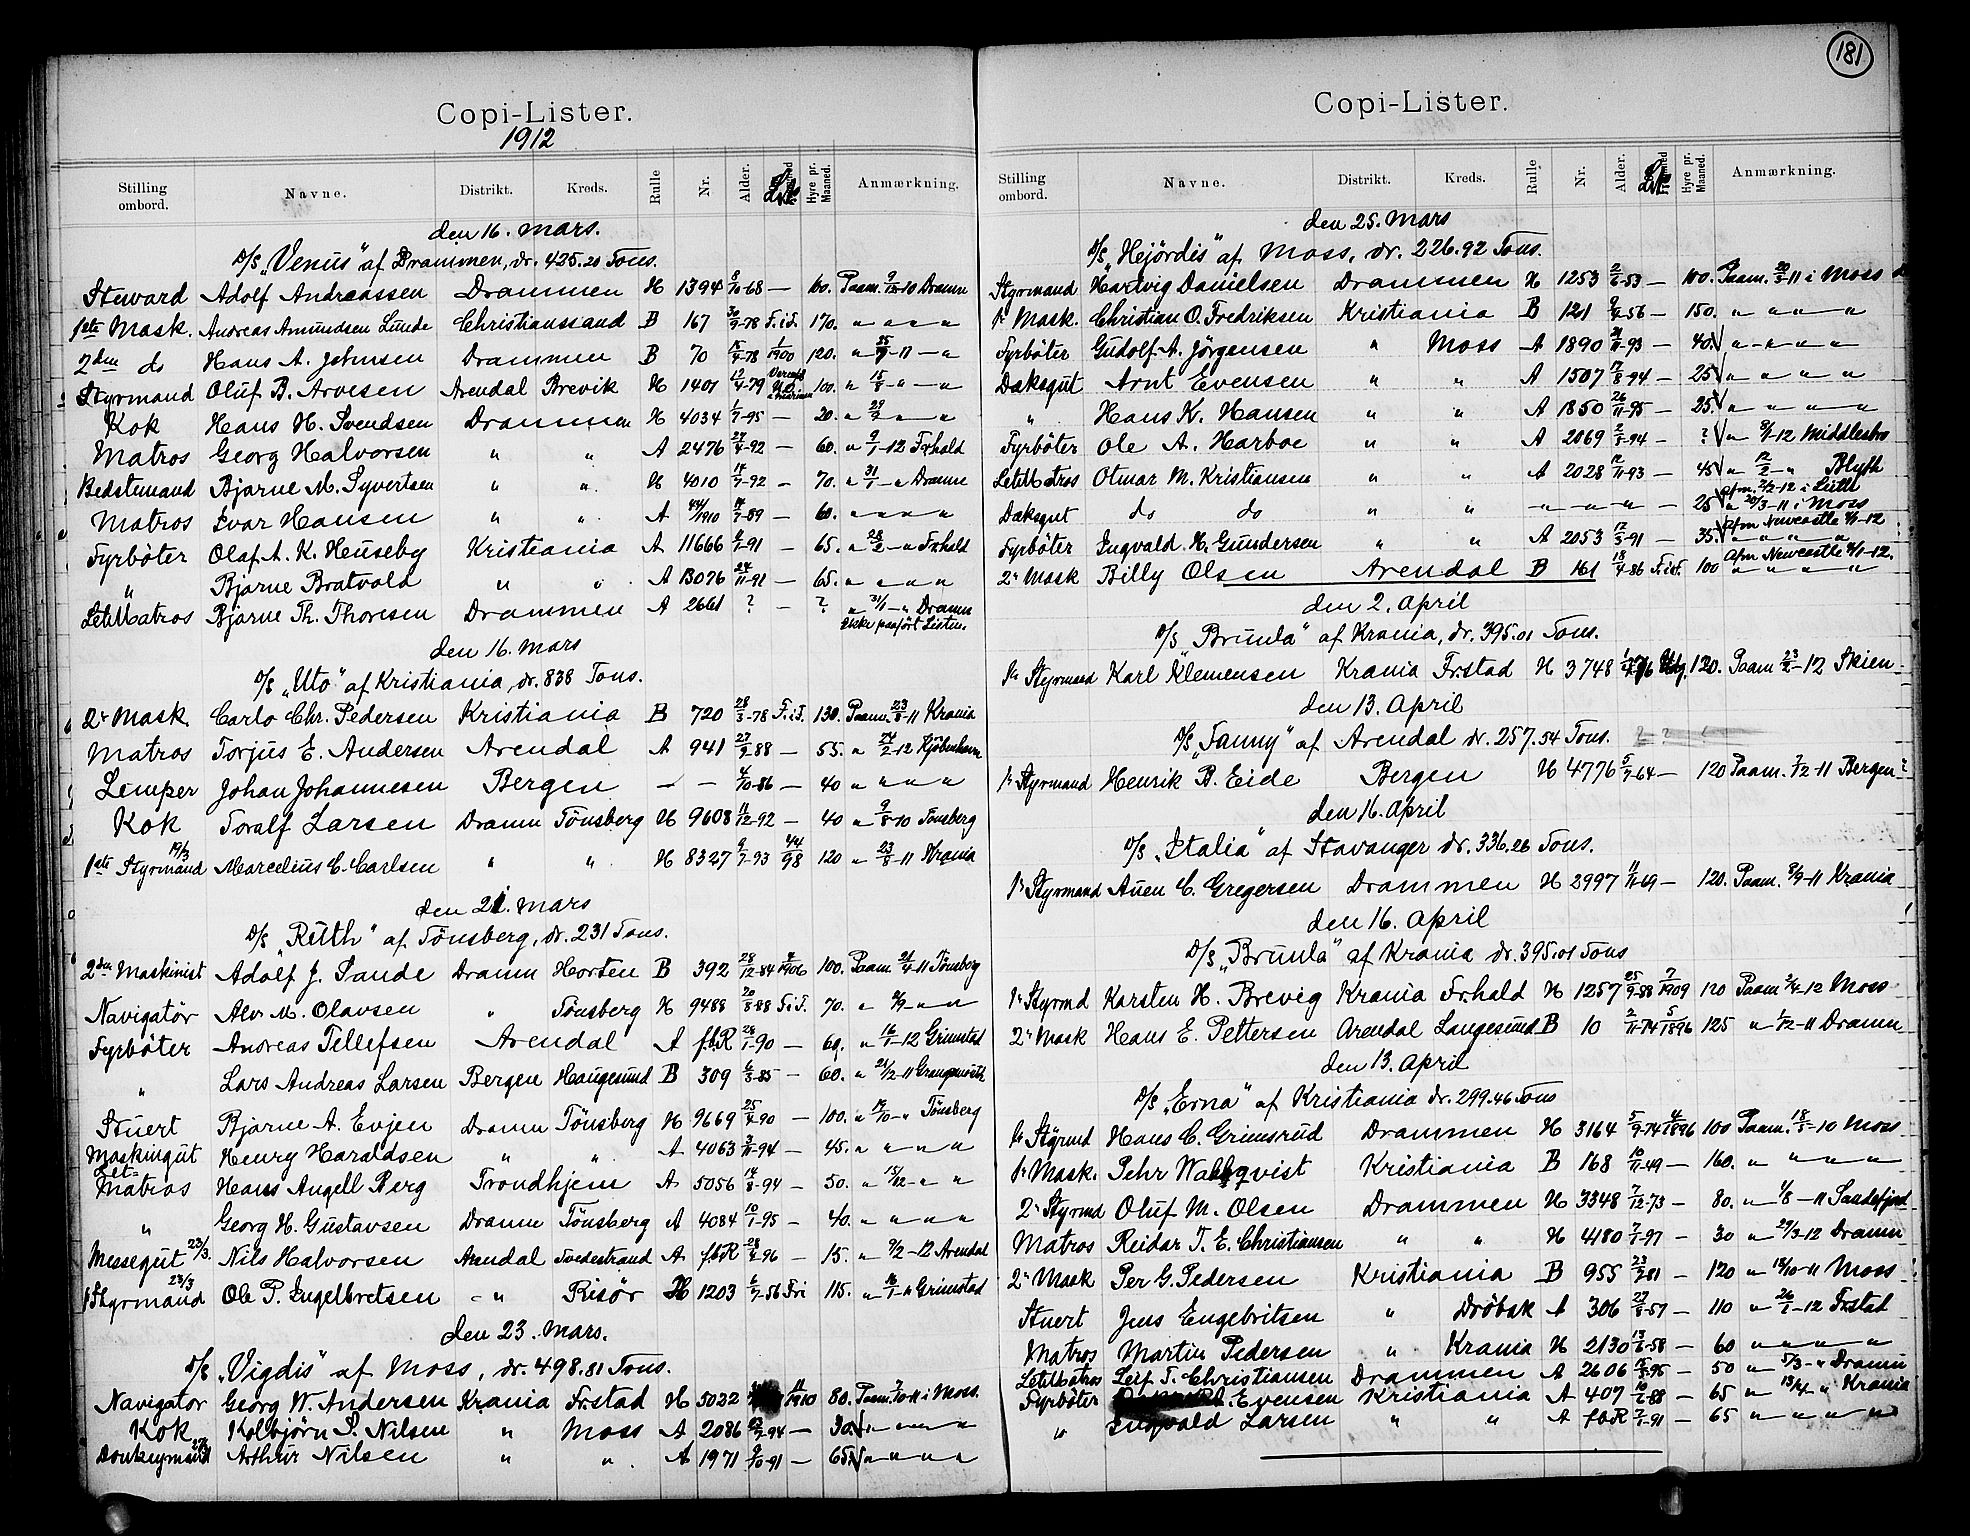 Copi-Lister.
1912
Stilling ombord. Navne. Distrikt. Kreds. Rulle Nr. Alder. Hyre pr. Maaned. Anmærkning.
den 16. Mars.
D/S „Venus" af Drammen, dr. 425.20 Tons.
Steward Adolf Andreassen Drammen H 1394 8/10-68 — 60. Paam. 9/12-10 Dramn
1ste Mask. Andreas Amundsen Lunde Christianssand B 167 30/9-78 F.i.F. 170. " " " "
2den do Hans A. Johnsen Drammen B 70 15/4-78 1/1900 120. " 25/7-11 — "
Styrmand Oluf B. Arvesen Arendal Brevik H 1401 12/4-79 100. " 15/8 - " - "
Kok Hans H. Svendsen Drammen H 4034 1/7-95 — 20. " 29/2 " "
Matros Georg Halvorsen " " A 2476 27/4-92 — 60. " 9/1-12 Frhald
Bedstemand Bjarne M. Syvertsen " " H 4010 14/7-92 — 70. " 31/1 - " Dramn
Matros Ivar Hansen " " A 44/1910 14/7-89 — 60. " " " "
Fyrbøter Olaf A. K. Heuseby Kristiania A 11666 6/1-91 — 65. " 28/2 - " Frhald
" Bjarne Bratvold " " A 13076 24/11-91 — 65. " " " "
LetMatros Bjarne Th. Thoresen Drammen A 2661 ? — ? " 31/1 - " Dramn
Ikke paaført Listen.
den 16. Mars
D/S „Uto" af Kristiania, dr. 838 Tons.
2r Mask. Carlo Chr. Pedersen Kristiania B 720 28/3-78 F.i.F. 130. Paam. 23/8-11 Krania
Matros Torjus E. Andersen Arendal A 941 27/9-88 — 55. " 24/2-12 Kjøbenhavn
Lemper Johan Johannesen Bergen — — 4/10-86 — 40 " " " "
Kok Toralf Larsen Dramn Tönsberg H 9608 11/12-92 — 40 " 9/8-10 Tönsberg
19/3
1ste Styrmand Marcelius C. Carlsen " " H 8327 9/7-93 44/98 120 " 23/8-11 Krania
den 21. Mars
D/S „Ruth" af Tönsberg, dr. 231 Tons.
2den Maskinist Adolf J. Sande Dramn Horten B 392 28/12-84 2/1906 100. Paam. 21/4-11 Tönsberg
Navigatör Alv M. Olavsen " Tönsberg H 9488 20/8-88 F.i.F. 70. " 2/9 " "
Fyrbøter Andreas Tellefsen Arendal A f.b.R 28/1-90 — 60. " 16/1-12 Grimstad
" Lars Andreas Larsen Bergen Haugesund B 309 6/3-85 — 60. " 24/12-11 Grangemouth
Stuert Bjarne A. Evjen Dramn Tönsberg H 9669 25/4-90 — 100. " 19/10 - " Tönsberg
Maskingut Henry Haraldsen " " A 4063 3/11-94 — 45. " " " "
Let-
Matros Hans Angell Berg Trondhjem A 5056 14/8-94 — 50. " 15/12 " "
" Georg H. Gustavsen Dramn Tönsberg A 4084 10/1-95 — 40. " " " "
Messegut 23/3. Nils Halvorsen Arendal Tvedestrand A f.b.R 28/4-96 — 15. " 9/2-12 Arendal
23/3
1 Styrmand Ole P. Ingelbretsen " Risör H 1203 6/7-56 Fri 115. " 16/1 - " Grimstad
den 23. Mars.
D/S „Vigdis" af Moss, dr. 498.81 Tons.
Navigatør Georg W. Andersen Krania Fr.stad H 5032 11/1910 80. Paam. 7/10-11 i Moss.
Kok Kolbjörn S. Nilsen " Moss A 2086 -94 — 30. " " " "
Donkeymand Arthur Nilsen " " A 1971 9/10-91 — 65. " " " "
181
Copi-Lister.
Stilling ombord. Navne. Distrikt. Kreds. Rulle Nr. Alder. Hyre pr. Maaned. Anmærkning.
den 25. Mars
D/S „Hejördis" af Moss, dr. 226.92 Tons.
Styrmand Hartvig Danielsen Drammen H 1253 2/6-53 — 100. Paam. 29/5-11 i Moss
1r Mask. Christian O. Fredriksen Kristiania B 121 9/9-56 — 150. " " " "
Fyrbøter Gudolf A. Jörgensen " Moss A 1890 21/11-93 — 40. " " " "
Dæksgut Arnt Evensen " " A 1507 7/8-94 — 25 " " " "
" Hans K. Hansen " " A 1850 26/11-95 — 25. " " " "
Fyrbøter Ole A. Harboe " " A 2069 2/5-94 — ? " 8/1-12 Middlesbro
LetMatros Otmar M. Kristiansen " " A 2028 12/11-93 — 45 " 12/2 - " Blyth
afm. 2/2-12 i Leith
Dæksgut do do " " " " " — 25 " 20/3-11 i Moss
afm Newcastle 4/1-12
Fyrbøter Ingvald H. Gundersen " " A 2053 12/5-91 — 35. " " " "
Afm Newcastle 4/1-12.
2r Mask Billy Olsen Arendal B 161 18/4-86 F.i.F. 100 " " " "
den 2. April
D/S „Brunla" af Krania, dr. 395.01 Tons.
1r Styrmand Karl Klemensen Krania Fr.stad H 3748 120. Paam 23/2-12 Skien
den 13. April
D/S „Fanny" af Arendal dr. 257.54 Tons.
1r Styrmand Henrik B. Eide Bergen H 4776 5/7-64 — 120 Paam. 7/12-11 Bergen
den 16. April
D/S „Italia" af Stavanger dr. 336.26 Tons.
1r Styrmand Auen C. Gregersen Drammen H 2997 11/11-69 — 120. Paam. 8/9-11 Krania
den 16. April
D/S „Brunla" af Krania dr. 395.01 Tons
1r Styrmd Karsten H. Brevig Krania Frhald H 1257 25/9-88 7/1909 120 Paam 3/4-12 Moss
2r Mask Hans E. Pettersen Arendal Langesund B 10 2/11-74 5/1896 125 " 1/12-11 Dramn
den 13. April
D/S „Erna" af Kristiania dr. 299.46 Tons
1r Styrmd Hans C. Grimsrud Drammen H 3164 5/9-74 4/1896 100 Paam. 18/5-10 Moss
1r Mask. Pehr Wahlqvist Kristiania B 168 10/11-49 — 160. " " " "
2r Styrmd Oluf M. Olsen Drammen H 3348 7/12-73 — 80. " 1/8-11 Sandefjord
Matros Reidar T. E. Christiansen " " H 4180 7/1-97 — 30 " 29/3-12 Dramn
2r Mask Per G. Pedersen Kristiania B 955 23/7-81 — 120 " 14/10-11 Moss
Stuert Jens Engebritsen " Dröbak A 306 27/8-57 — 110 " 26/1-12 Frstad
Matros Martin Pedersen " Krania H 2130 13/6-58 — 60 " " " "
LetMatros Leif T. Christiansen Drammen A 2606 15/5-95 — 50 " 5/3 - " Dramn
Fyrbøter Evensen Kristiania A 407 10/6-88 — 65 " 13/4 " Krania
" Ingvald Larsen " " A f.b.R 7/1-91 — 65 " " " "